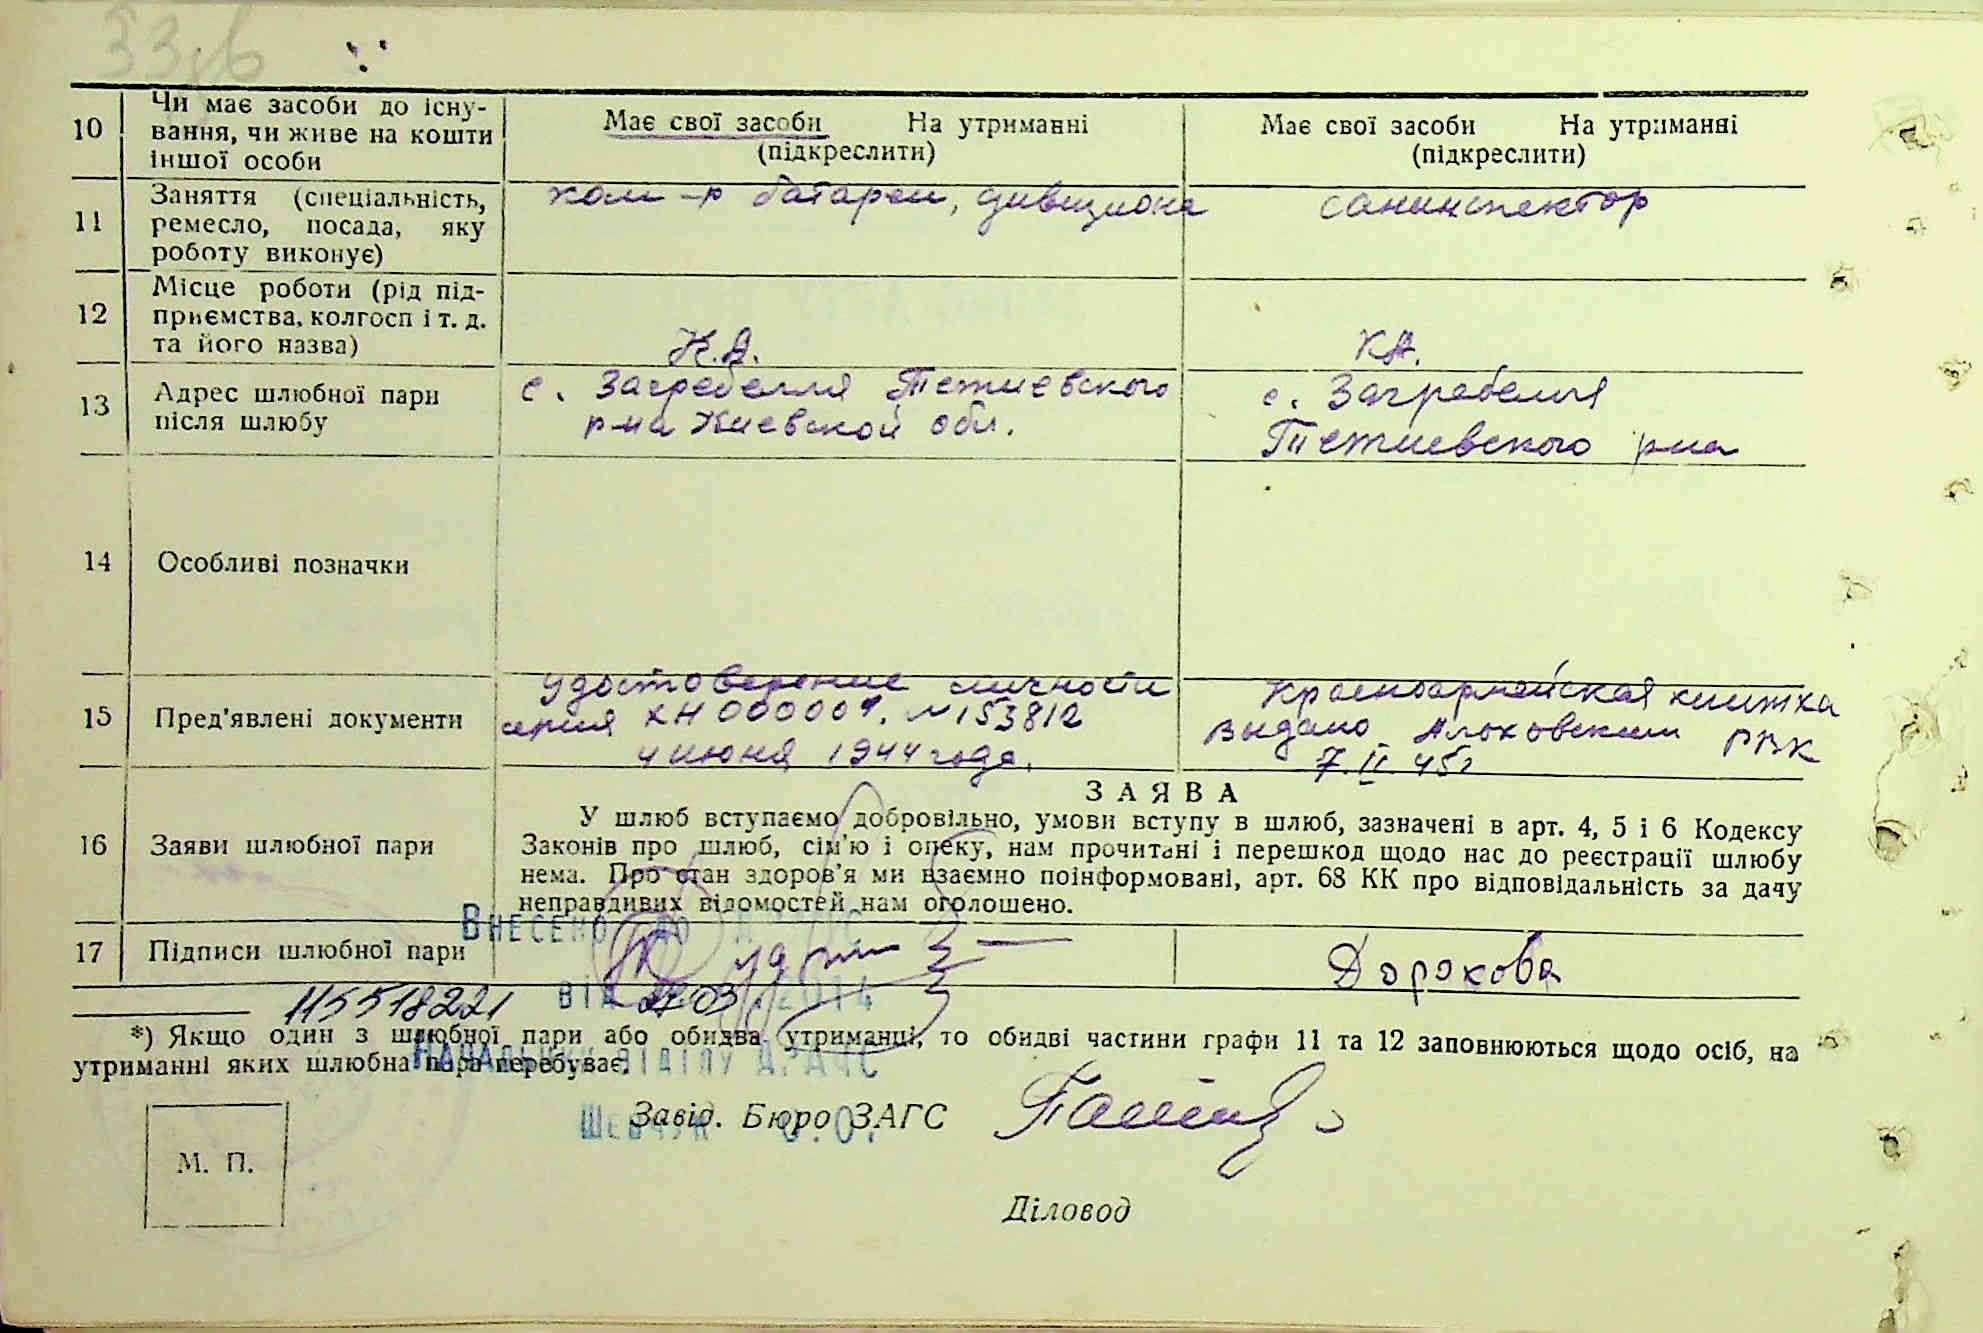 33зв
10
Чи має засоби до існу-
вання, чи живе на кошти
іншої особи
Має свої засоби На утриманні
(підкреслити)
Має свої засоби На утриманні
(підкреслити)
11
Заняття (спеціальність,
ремесло, посада, яку
роботу виконує)
ком-р батареи, дивизиона
санинспектор
12
Місце роботи (рід під-
приємства, колгосп і т. д.
та його назва)
К.А.
КА.
13
Адрес шлюбної пари
після шлюбу
с. Загребелля Тетиевского
р-на Киевской обл.
с. Загребелля
Тетиевского р-на
14
Особливі позначки
15
Пред'явлені документи
удостоверение личности
серия ХН 000009. № 153812
4 июня 1944 года.
Красноармейская книжка
выдано РВК
7.II.45г
16
Заяви шлюбної пари
ЗАЯВА
У шлюб вступаємо добровільно, умови вступу в шлюб, зазначені в арт. 4, 5 і 6 Кодексу
Законів про шлюб, сім'ю і опеку, нам прочитані і перешкод щодо нас до реєстрації шлюбу
нема. Про стан здоров'я ми взаємно поінформовані, арт. 68 КК про відповідальність за дачу
неправдивих відомостей нам оголошено.
Внесено до
17
Підписи шлюбної пари
Дорохова
115518221
від 27.03. 2014
*) Якщо один з шлюбної пари або обидва утриманці, то обидві частини графи 11 та 12 заповнюються щодо осіб, на
утриманні яких шлюбна пара перебуває.
Начальник відділу ДРАЦС
Завід. Бюро ЗАГС
Шевчук О.О.
М. П.
Діловод